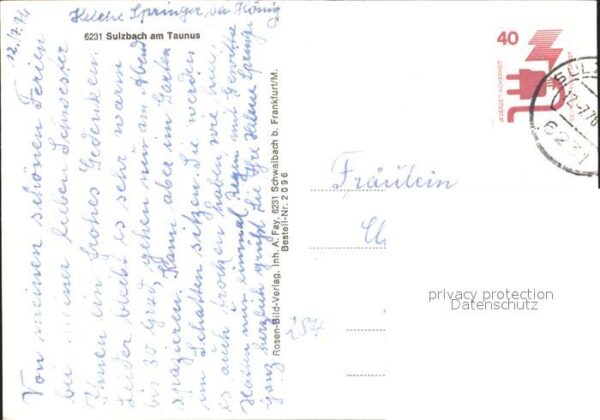 Helene Springer bei König
12./7.76
6231 Sulzbach am Taunus
Von meinen schönen Ferien
bei meiner lieben Schwester
Ihnen ein frohes Gedenken
Leider bleibt es sehr warm
bis 30 Grad, gehen nur am Abend
spazieren. Kann aber im Garten
im Schatten sitzen. Sie werden
es auch trocken haben wie hier,
Hatten nur einmal Regen mit Gewitter
Ganz herzlich grüßt Sie Ihre Helene Springer
Rosen-Bild-Verlag, Inh. A. Fay, 6231 Schwalbach b. Frankfurt/M.
Bestell-Nr. 2096
257
40
JEDERZEIT SICHERHEIT
12.-7.76
6231
Fräulein
privacy protection
Datenschutz